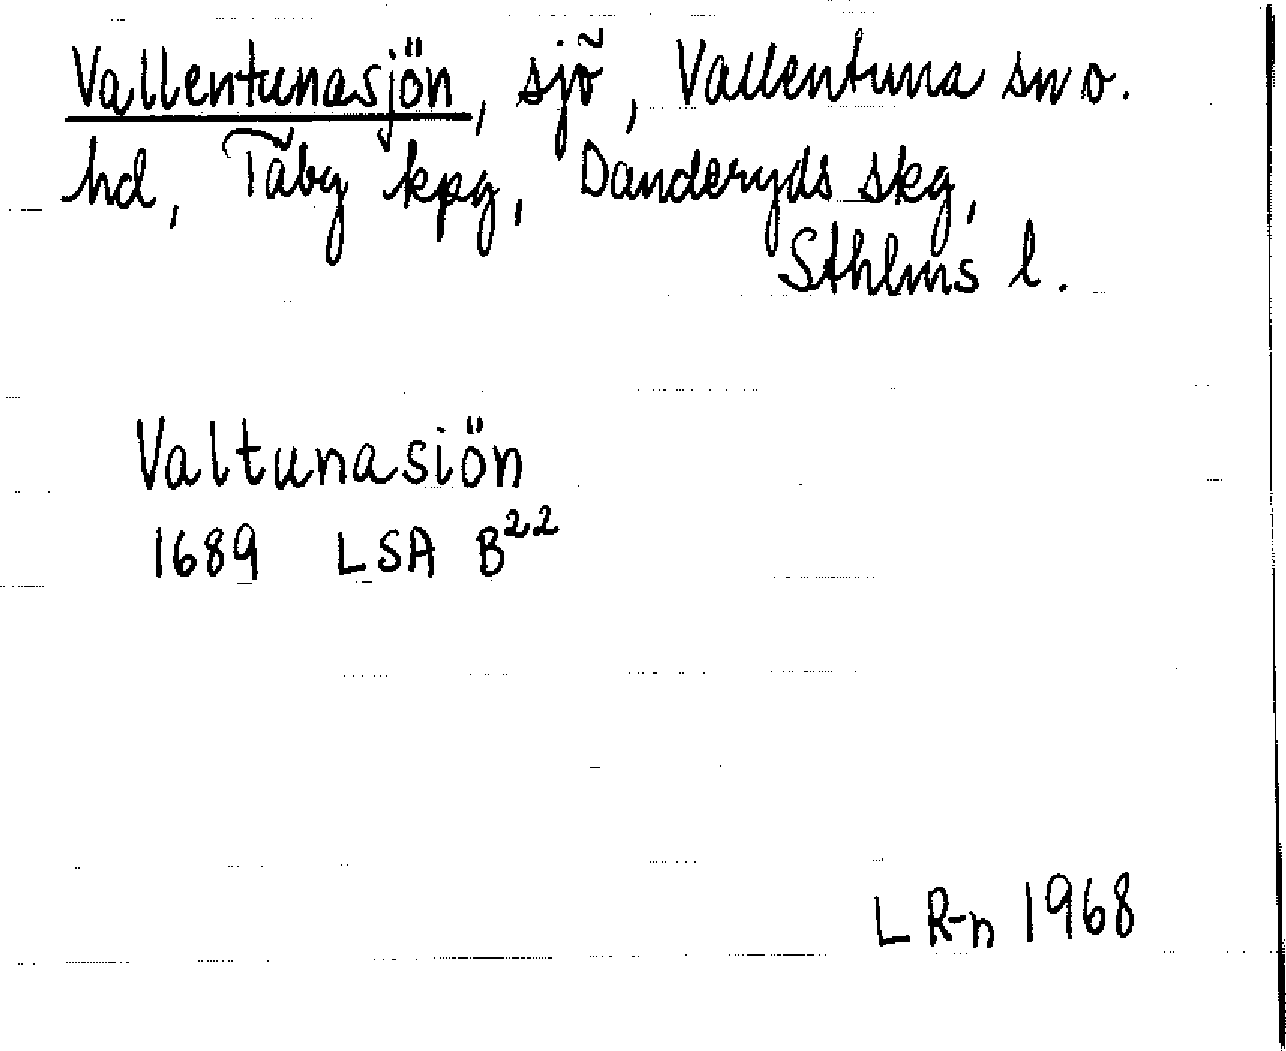 Vallentunasjön, sjö, Vallentuna sn o.
hd, Täby kpg, Danderyds skg,
Sthlms l.
Valtunasiön
1689 LSA B²²
L R-n 1968